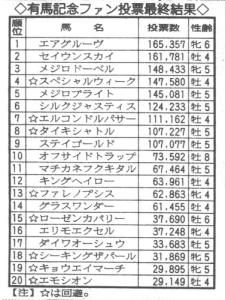 ◇有馬記念ファン投票最終結果◇
順位 馬名 投票数 性齢
1 エアグルーヴ 165,357 牝6
2 セイウンスカイ 161,781 牡4
3 メジロドーベル 148,433 牝5
4 ☆スペシャルウィーク 147,580 牡4
5 メジロブライト 145,081 牡5
6 シルクジャスティス 124,233 牡5
7 ☆エルコンドルパサー 111,162 牡4
8 ☆タイキシャトル 107,227 牡5
9 ステイゴールド 107,077 牡5
10 オフサイドトラップ 73,592 牡8
11 マチカネフクキタル 67,464 牡5
12 キングヘイロー 63,961 牡4
13 ☆ファレノプシス 62,863 牝4
14 グラスワンダー 61,455 牡4
15 ☆ローゼンカバリー 37,690 牡6
16 エリモエクセル 37,248 牝4
17 ダイワオーシュウ 33,683 牡5
18 ☆シーキングザパール 31,869 牝5
19 ☆キョウエイマーチ 29,895 牝5
20 ☆エモシオン 29,149 牡4
【注】☆は回避。